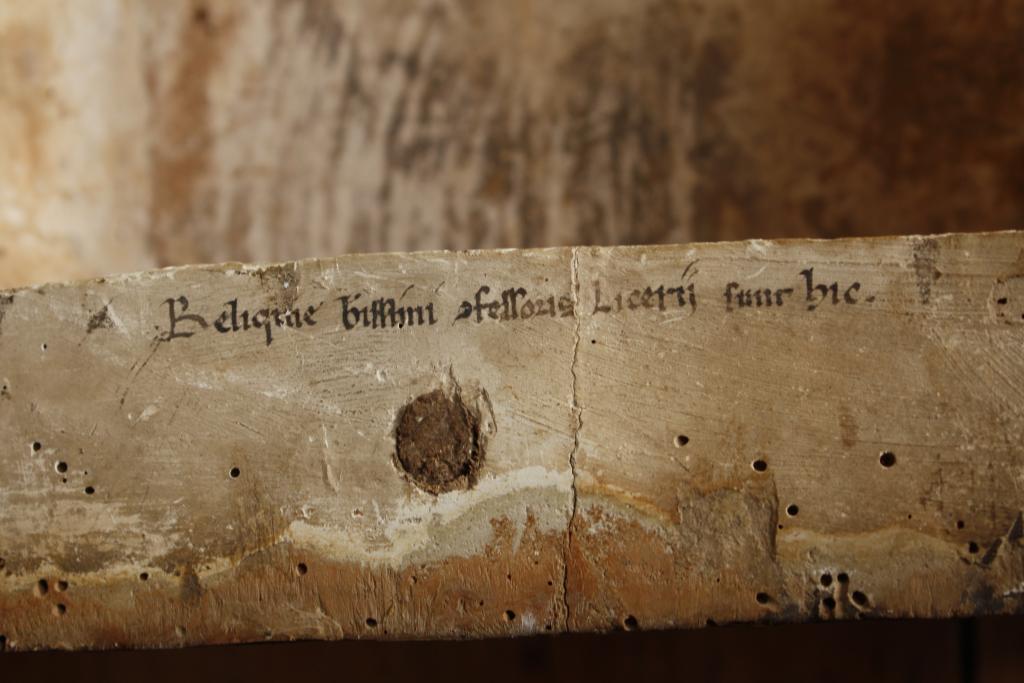 Reliquie bissimi ↄfessoris Licerij sunt hic.